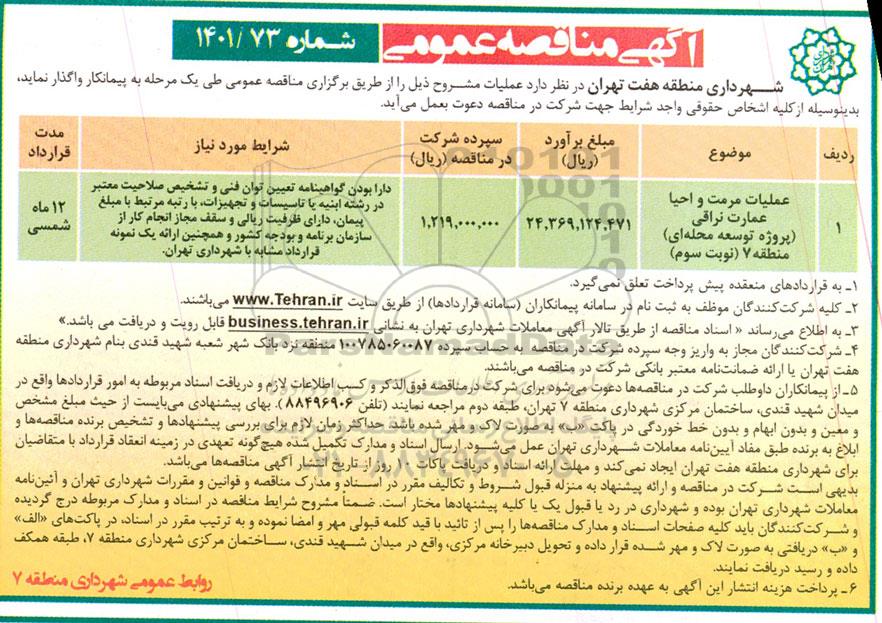 آگهی مناقصه عمومی
شماره ۷۳ /۱۴۰۱
شهرداری منطقه هفت تهران در نظر دارد عملیات مشروح ذیل را از طریق برگزاری مناقصه عمومی طی یک مرحله به پیمانکار واگذار نماید،
بدینوسیله از کلیه اشخاص حقوقی واجد شرایط جهت شرکت در مناقصه دعوت بعمل می‌آید.
ردیف
موضوع
مبلغ برآورد
(ریال)
سپرده شرکت
در مناقصه (ریال)
شرایط مورد نیاز
مدت
قرارداد
۱
عملیات مرمت و احیا
عمارت نراقی
(پروژه توسعه محله‌ای)
منطقه ۷ (نوبت سوم)
۲۴,۳۶۹,۱۲۴,۴۷۱
۱,۲۱۹,۰۰۰,۰۰۰
دارا بودن گواهینامه تعیین توان فنی و تشخیص صلاحیت معتبر
در رشته ابنیه یا تاسیسات و تجهیزات، با رتبه مرتبط با مبلغ
پیمان، دارای ظرفیت ریالی و سقف مجاز انجام کار از
سازمان برنامه و بودجه کشور و همچنین ارائه یک نمونه
قرارداد مشابه با شهرداری تهران.
۱۲ ماه
شمسی
۱ـ به قراردادهای منعقده پیش پرداخت تعلق نمی‌گیرد.
۲ـ کلیه شرکت‌کنندگان موظف به ثبت نام در سامانه پیمانکاران (سامانه قراردادها) از طریق سایت www.Tehran.ir می‌باشند.
۳ـ به اطلاع می‌رساند « اسناد مناقصه از طریق تالار آگهی معاملات شهرداری تهران به نشانی business.tehran.ir قابل رویت و دریافت می باشد.»
۴ـ شرکت‌کنندگان مجاز به واریز وجه سپرده شرکت در مناقصه به حساب سپرده ۱۰۰۷۸۵۰۶۰۰۸۷ منطقه نزد بانک شهر شعبه شهید قندی بنام شهرداری منطقه
هفت تهران یا ارائه ضمانت‌نامه معتبر بانکی شرکت در مناقصه می‌باشند.
۵ـ از پیمانکاران داوطلب شرکت در مناقصه‌ها دعوت می‌شود برای شرکت در مناقصه فوق‌الذکر و کسب اطلاعات لازم و دریافت اسناد مربوطه به امور قراردادها واقع در
میدان شهید قندی، ساختمان مرکزی شهرداری منطقه ۷ تهران، طبقه دوم مراجعه نمایند (تلفن ۸۸۴۹۶۹۰۶). بهای پیشنهادی می‌بایست از حیث مبلغ مشخص
و معین و بدون ابهام و بدون خط خوردگی در پاکت «ب» به صورت لاک و مهر شده باشد. حداکثر زمان لازم برای بررسی پیشنهادها و تشخیص برنده مناقصه‌ها و
ابلاغ به برنده طبق مفاد آیین‌نامه معاملات شهرداری تهران عمل می‌شود. ارسال اسناد و مدارک تکمیل شده هیچ‌گونه تعهدی در زمینه انعقاد قرارداد با متقاضیان
برای شهرداری منطقه هفت تهران ایجاد نمی‌کند و مهلت ارائه اسناد و دریافت پاکات ۱۰ روز از تاریخ انتشار آگهی مناقصه‌ها می‌باشد.
بدیهی است شرکت در مناقصه و ارائه پیشنهاد به منزله قبول شروط و تکالیف مقرر در اسناد و مدارک مناقصه و قوانین و مقررات شهرداری تهران و آئین‌نامه
معاملات شهرداری تهران بوده و شهرداری در رد یا قبول یک یا کلیه پیشنهادها مختار است. ضمناً مشروح شرایط مناقصه در اسناد و مدارک مربوطه درج گردیده
و شرکت‌کنندگان باید کلیه صفحات اسناد و مدارک مناقصه‌ها را پس از تائید با قید کلمه قبولی مهر و امضا نموده و به ترتیب مقرر در اسناد، در پاکت‌های «الف»
و «ب» دریافتی به صورت لاک و مهر شده قرار داده و تحویل دبیرخانه مرکزی، واقع در میدان شهید قندی، ساختمان مرکزی شهرداری منطقه ۷، طبقه همکف
داده و رسید دریافت نمایند.
۶ـ پرداخت هزینه انتشار این آگهی به عهده برنده مناقصه می‌باشد.
روابط عمومی شهرداری منطقه ۷